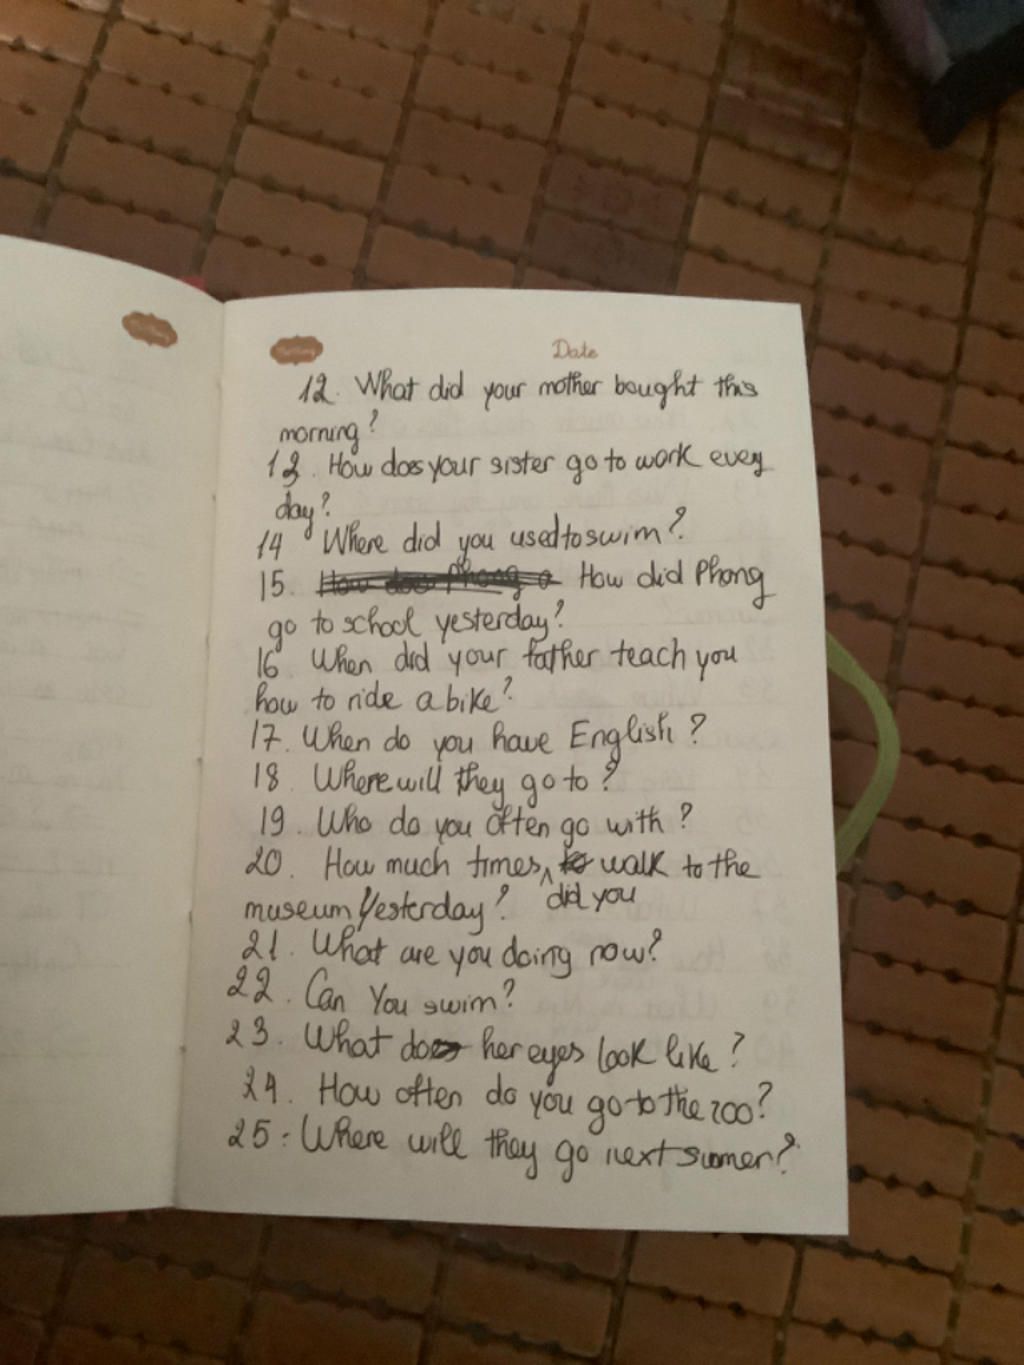 Date
12. What did your mother bought this
morning?
13. How does your sister go to work every
day?
14 Where did you used to swim?
15. How does Phong a How did Phong
go to school yesterday?
16 When did your father teach you
how to ride a bike?
17. When do you have English?
18. Where will they go to?
19. Who do you often go with?
20. How much times, to walk to the
museum Yesterday? did you
21. What are you doing now?
22. Can You swim?
23. What does her eyes look like?
24. How often do you go to the zoo?
25. Where will they go next summer?